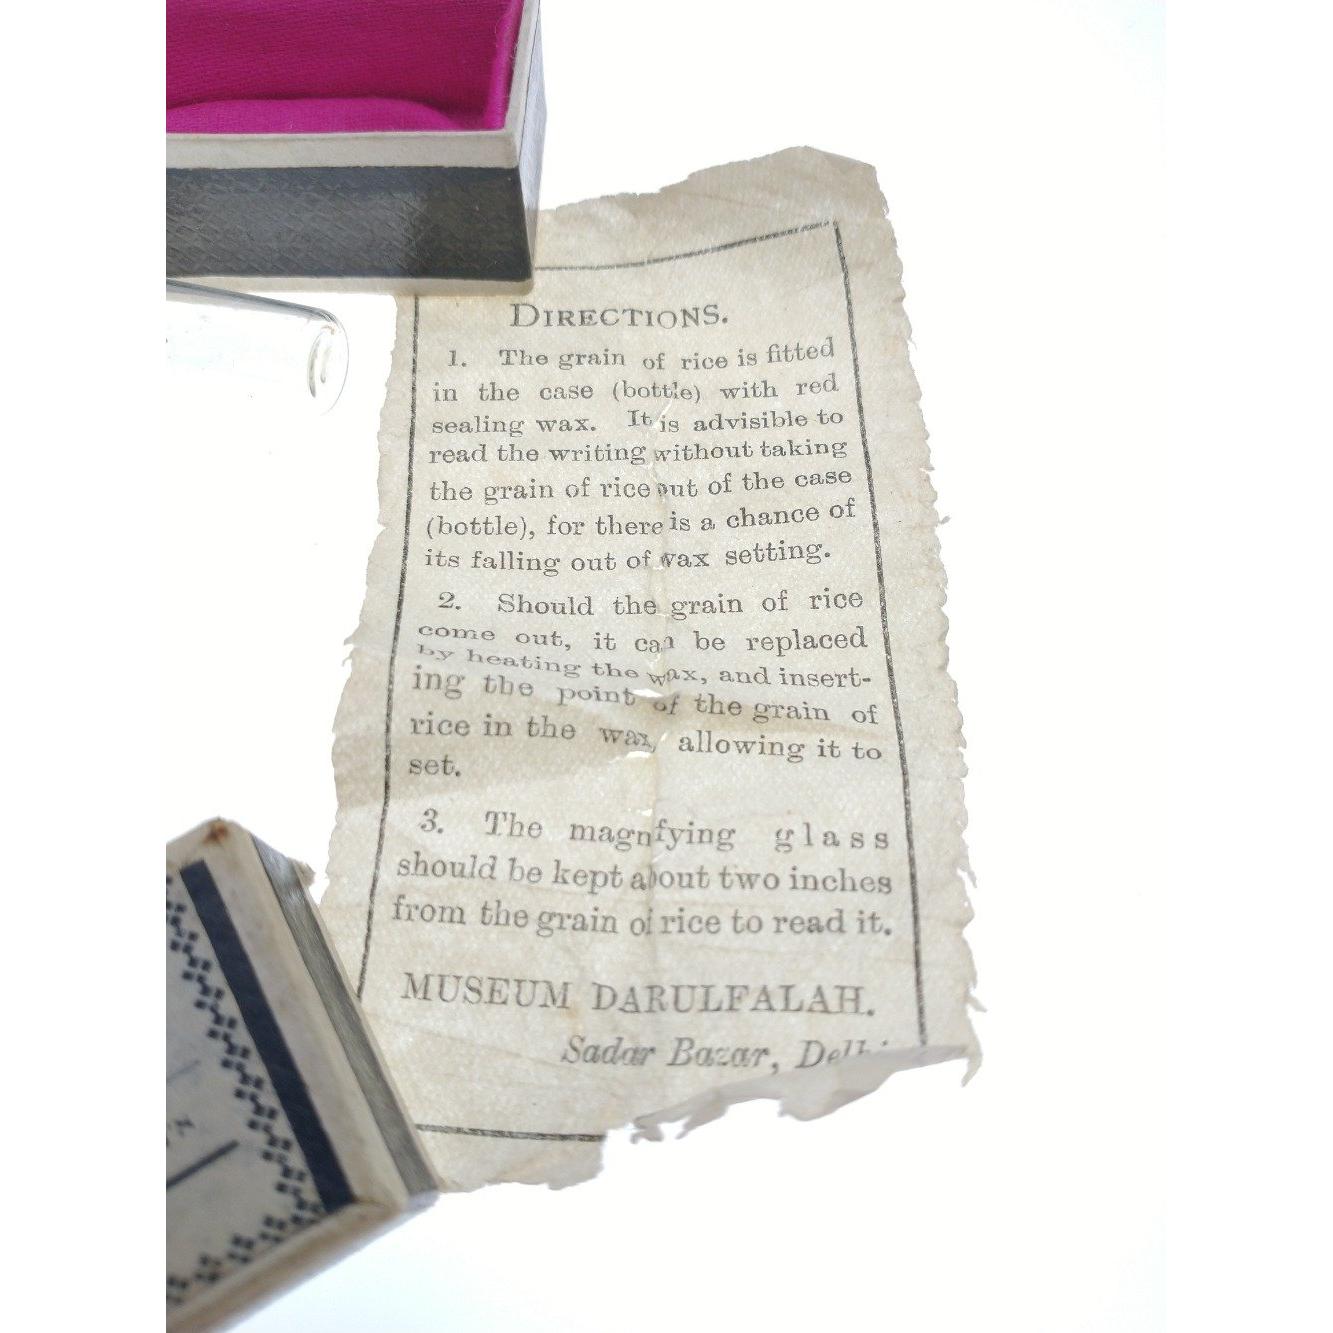 DIRECTIONS.
1. The grain of rice is fitted
in the case (bottle) with red
sealing wax. It is advisible to
read the writing without taking
the grain of rice out of the case
(bottle), for there is a chance of
its falling out of wax setting.
2. Should the grain of rice
come out, it can be replaced
by heating the wax, and insert-
ing the point of the grain of
rice in the wax, allowing it to
set.
3. The magnfying glass
should be kept about two inches
from the grain of rice to read it.
MUSEUM DARULFALAH.
Sadar Bazar, Delhi